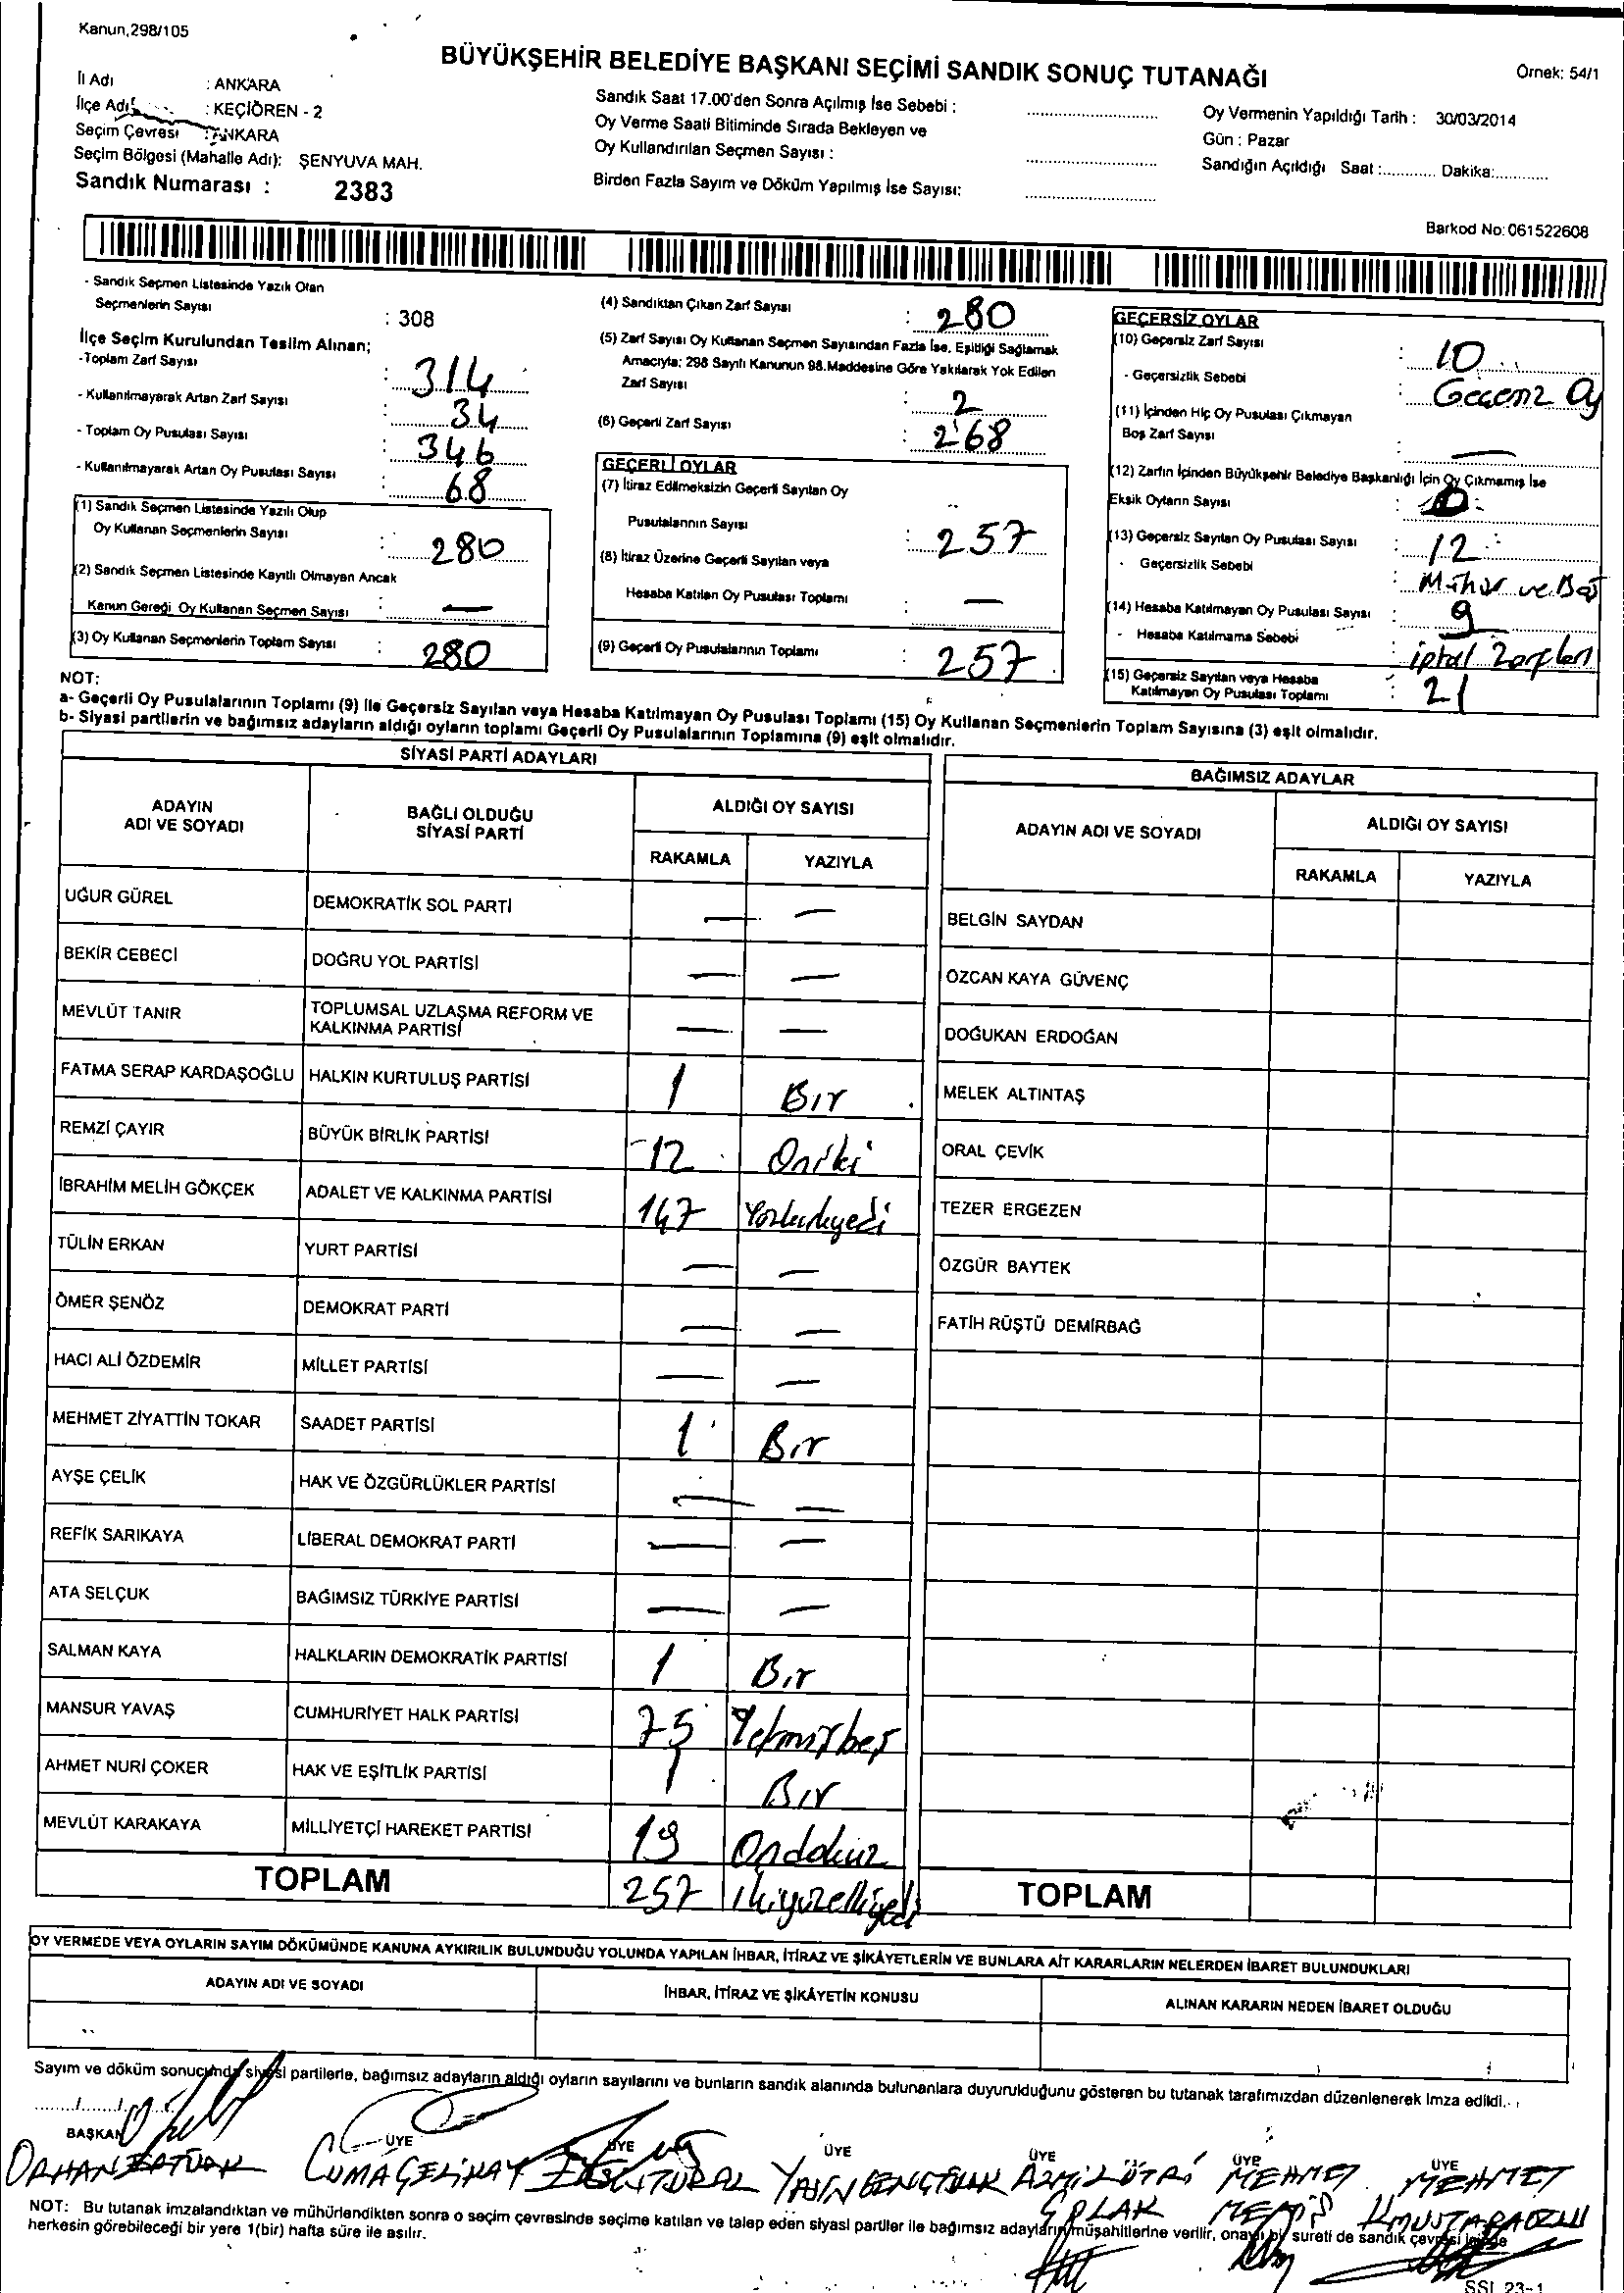 Kanun,298/105
BÜYÜKŞEHİR BELEDİYE BAŞKANI SEÇİMİ SANDIK SONUÇ TUTANAĞI
Örnek: 54/1
İl Adı : ANKARA
İlçe Adı : KEÇİÖREN - 2
Seçim Çevresi : ANKARA
Seçim Bölgesi (Mahalle Adı): ŞENYUVA MAH.
Sandık Numarası : 2383
Sandık Saat 17.00'den Sonra Açılmış İse Sebebi :
Oy Verme Saati Bitiminde Sırada Bekleyen ve
Oy Kullandırılan Seçmen Sayısı :
Birden Fazla Sayım ve Döküm Yapılmış İse Sayısı:
Oy Vermenin Yapıldığı Tarih : 30/03/2014
Gün : Pazar
Sandığın Açıldığı Saat :............ Dakika:............
Barkod No:061522608
- Sandık Seçmen Listesinde Yazılı Olan
Seçmenlerin Sayısı : 308
İlçe Seçim Kurulundan Teslim Alınan;
-Toplam Zarf Sayısı : 314
- Kullanılmayarak Artan Zarf Sayısı : 34
- Toplam Oy Pusulası Sayısı : 346
- Kullanılmayarak Artan Oy Pusulası Sayısı : 68
(1) Sandık Seçmen Listesinde Yazılı Olup
Oy Kullanan Seçmenlerin Sayısı : 280
(2) Sandık Seçmen Listesinde Kayıtlı Olmayan Ancak
Kanun Gereği Oy Kullanan Seçmen Sayısı : —
(3) Oy Kullanan Seçmenlerin Toplam Sayısı : 280
(4) Sandıktan Çıkan Zarf Sayısı : 280
(5) Zarf Sayısı Oy Kullanan Seçmen Sayısından Fazla İse, Eşitliği Sağlamak
Amacıyla; 298 Sayılı Kanunun 98.Maddesine Göre Yakılarak Yok Edilen
Zarf Sayısı : 2
(6) Geçerli Zarf Sayısı : 268
GEÇERLİ OYLAR
(7) İtiraz Edilmeksizin Geçerli Sayılan Oy
Pusulalarının Sayısı : 257
(8) İtiraz Üzerine Geçerli Sayılan veya
Hesaba Katılan Oy Pusulası Toplamı : —
(9) Geçerli Oy Pusulalarının Toplamı : 257
GEÇERSİZ OYLAR
(10) Geçersiz Zarf Sayısı : 10
- Geçersizlik Sebebi : Geçersiz Oy
(11) İçinden Hiç Oy Pusulası Çıkmayan
Boş Zarf Sayısı : —
(12) Zarfın İçinden Büyükşehir Belediye Başkanlığı İçin Oy Çıkmamış İse
Eksik Oyların Sayısı :
(13) Geçersiz Sayılan Oy Pusulası Sayısı : 12
- Geçersizlik Sebebi : Mühür ve Boş
(14) Hesaba Katılmayan Oy Pusulası Sayısı : 9
- Hesaba Katılmama Sebebi : iptal Zarfları
(15) Geçersiz Sayılan veya Hesaba
Katılmayan Oy Pusulası Toplamı : 21
NOT:
a- Geçerli Oy Pusulalarının Toplamı (9) ile Geçersiz Sayılan veya Hesaba Katılmayan Oy Pusulası Toplamı (15) Oy Kullanan Seçmenlerin Toplam Sayısına (3) eşit olmalıdır.
b- Siyasi partilerin ve bağımsız adayların aldığı oyların toplamı Geçerli Oy Pusulalarının Toplamına (9) eşit olmalıdır.
SİYASİ PARTİ ADAYLARI
ADAYIN ADI VE SOYADI BAĞLI OLDUĞU SİYASİ PARTİ ALDIĞI OY SAYISI
RAKAMLA YAZIYLA
UĞUR GÜREL DEMOKRATİK SOL PARTİ — —
BEKİR CEBECİ DOĞRU YOL PARTİSİ — —
MEVLÜT TANIR TOPLUMSAL UZLAŞMA REFORM VE KALKINMA PARTİSİ — —
FATMA SERAP KARDAŞOĞLU HALKIN KURTULUŞ PARTİSİ 1 Bir
REMZİ ÇAYIR BÜYÜK BİRLİK PARTİSİ 12 Oniki
İBRAHİM MELİH GÖKÇEK ADALET VE KALKINMA PARTİSİ 147 Yüzkırkyedi
TÜLİN ERKAN YURT PARTİSİ — —
ÖMER ŞENÖZ DEMOKRAT PARTİ — —
HACI ALİ ÖZDEMİR MİLLET PARTİSİ — —
MEHMET ZİYATTİN TOKAR SAADET PARTİSİ 1 Bir
AYŞE ÇELİK HAK VE ÖZGÜRLÜKLER PARTİSİ — —
REFİK SARIKAYA LİBERAL DEMOKRAT PARTİ — —
ATA SELÇUK BAĞIMSIZ TÜRKİYE PARTİSİ — —
SALMAN KAYA HALKLARIN DEMOKRATİK PARTİSİ 1 Bir
MANSUR YAVAŞ CUMHURİYET HALK PARTİSİ 75 Yetmişbeş
AHMET NURİ ÇOKER HAK VE EŞİTLİK PARTİSİ 1 Bir
MEVLÜT KARAKAYA MİLLİYETÇİ HAREKET PARTİSİ 19 Ondokuz
TOPLAM 257 ikiyüzelliyedi
BAĞIMSIZ ADAYLAR
ADAYIN ADI VE SOYADI ALDIĞI OY SAYISI
RAKAMLA YAZIYLA
BELGİN SAYDAN
ÖZCAN KAYA GÜVENÇ
DOĞUKAN ERDOĞAN
MELEK ALTINTAŞ
ORAL ÇEVİK
TEZER ERGEZEN
ÖZGÜR BAYTEK
FATİH RÜŞTÜ DEMİRBAĞ
TOPLAM
OY VERMEDE VEYA OYLARIN SAYIM DÖKÜMÜNDE KANUNA AYKIRILIK BULUNDUĞU YOLUNDA YAPILAN İHBAR, İTİRAZ VE ŞİKÂYETLERİN VE BUNLARA AİT KARARLARIN NELERDEN İBARET BULUNDUKLARI
ADAYIN ADI VE SOYADI İHBAR, İTİRAZ VE ŞİKÂYETİN KONUSU ALINAN KARARIN NEDEN İBARET OLDUĞU
Sayım ve döküm sonucunda siyasi partilerle, bağımsız adayların aldığı oyların sayılarını ve bunların sandık alanında bulunanlara duyurulduğunu gösteren bu tutanak tarafımızdan düzenlenerek imza edildi.
......../......../........
BAŞKAN ÜYE ÜYE ÜYE ÜYE ÜYE ÜYE
ORHAN CUMA ÇELİKAY AZMİ LÜTFİ MEHMET MEHMET
NOT: Bu tutanak imzalandıktan ve mühürlendikten sonra o seçim çevresinde seçime katılan ve talep eden siyasi partiler ile bağımsız adayların müşahitlerine verilir, onaylı bir sureti de sandık çevresi içinde
herkesin görebileceği bir yere 1(bir) hafta süre ile asılır.
SSI 23-1